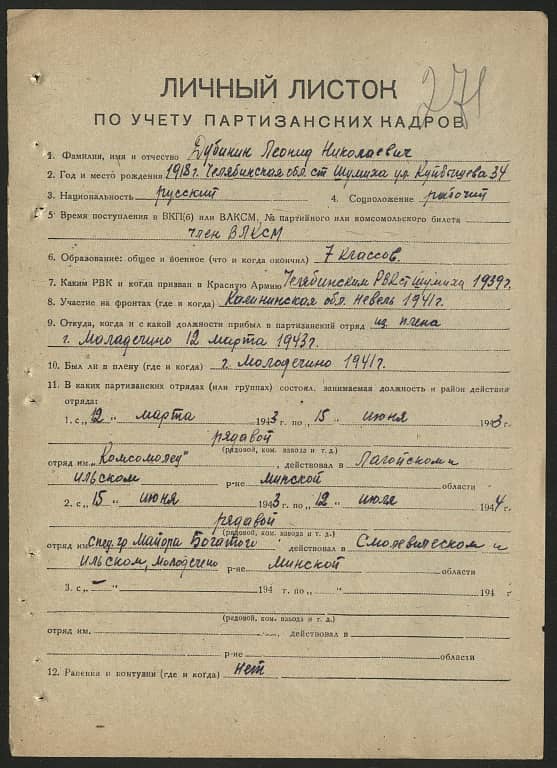 271
ЛИЧНЫЙ ЛИСТОК
ПО УЧЕТУ ПАРТИЗАНСКИХ КАДРОВ
1. Фамилия, имя и отчество Дубинин Леонид Николаевич
2. Год и место рождения 1918 г. Челябинская обл. ст Шумиха ул Куйбышева 34
3. Национальность русский 4. Соцположение рабочий
5. Время поступления в ВКП(б) или ВЛКСМ, № партийного или комсомольского билета
член ВЛКСМ
6. Образование: общее и военное (что и когда окончил) 7 классов.
7. Каким РВК и когда призван в Красную Армию Челябинским РВК ст Шумиха 1939 г.
8. Участие на фронтах (где и когда) Калининская обл. Невель 1941 г.
9. Откуда, когда и с какой должности прибыл в партизанский отряд из плена
г. Моладечино 12 марта 1943 г.
10. Был ли в плену (где и когда) г. Молодечино 1941 г.
11. В каких партизанских отрядах (или группах) состоял, занимаемая должность и район действия
отряда:
1. с „12 " марта 1943 г. по „15 " июня 1943 г.
рядавой
(рядовой, ком. взвода и т. д.)
отряд им. „Комсомолец" , действовал в Лагойском и
Ильском р-не Минской области
2. с „15 " июня 1943 г. по „12 " июля 1944 г.
рядавой
(рядовой, ком. взвода и т. д.)
отряд им. Спец. гр Майора Богатого действовал в Смолевическом и
Ильском, Молодечено р-не Минской области
3. с „ — " 194 г. по „ " 194 г.
(рядовой, ком. взвода и т. д.)
отряд им. , действовал в
р-не области
12. Ранения и контузии (где и когда) нет